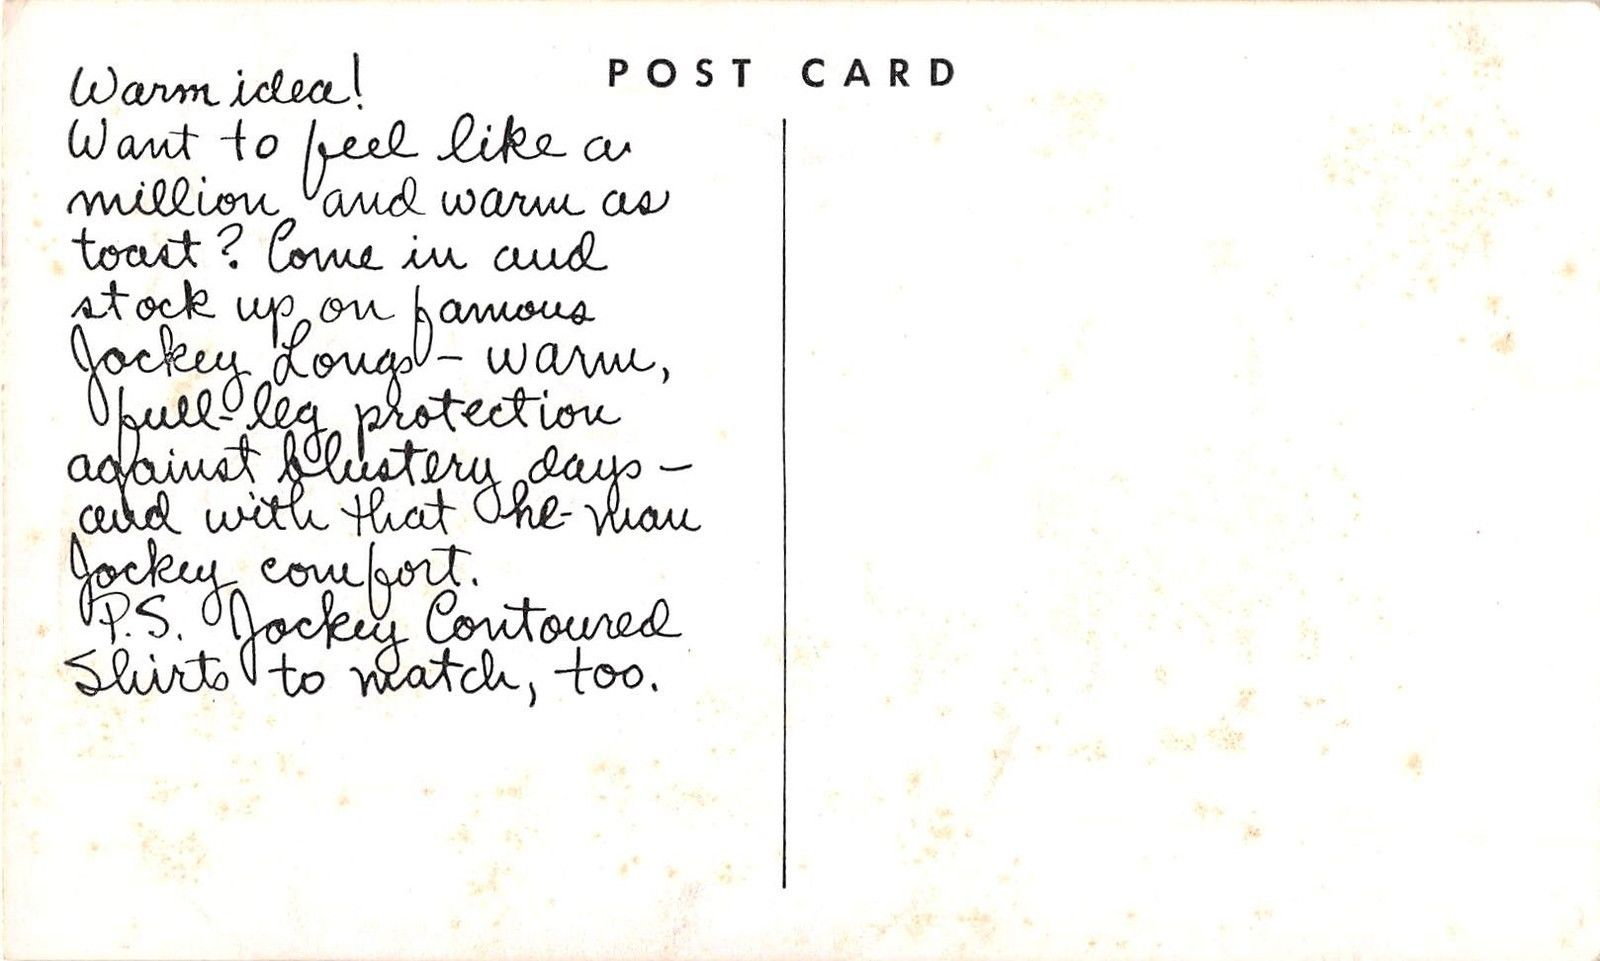 POST CARD
Warm idea!
Want to feel like a
million and warm as
toast? Come in and
stock up on famous
Jockey Longs - warm,
full-leg protection
against blustery days -
and with that he-man
Jockey comfort.
P.S. Jockey Contoured
Shirts to match, too.